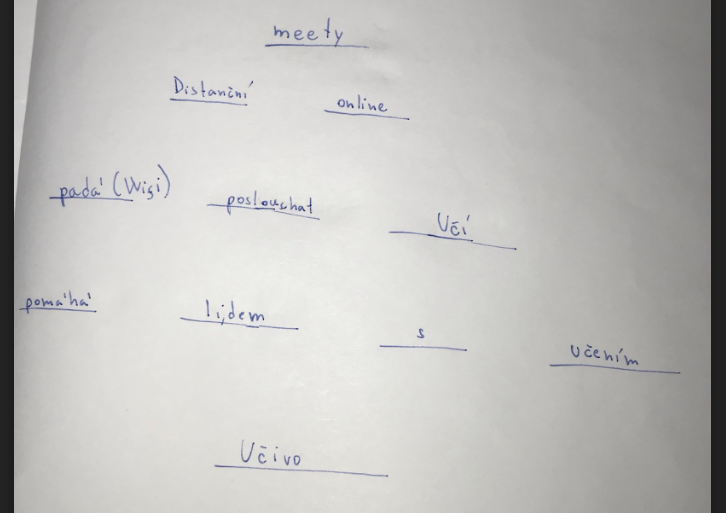 meety
Distanční online
padá (Wifi) poslouchat Učí
pomáhá lidem s učením
Učivo